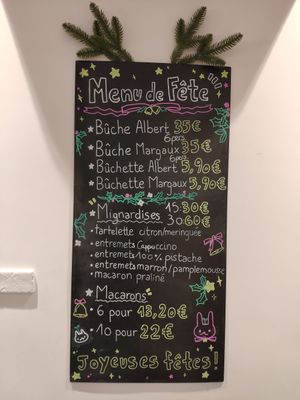 Menu de Fête
Bûche Albert 35€
6 pers
Bûche Margaux 35€
6 pers
Bûchette Albert 5,90€
Bûchette Margaux 5,90€
Mignardises 15:30€
30:60€
tartelette citron/meringuée
entremets Cappuccino
entremets 100% pistache
entremets marron/pamplemousse
macaron praliné
Macarons
6 pour 13,20€
10 pour 22€
Joyeuses fêtes!